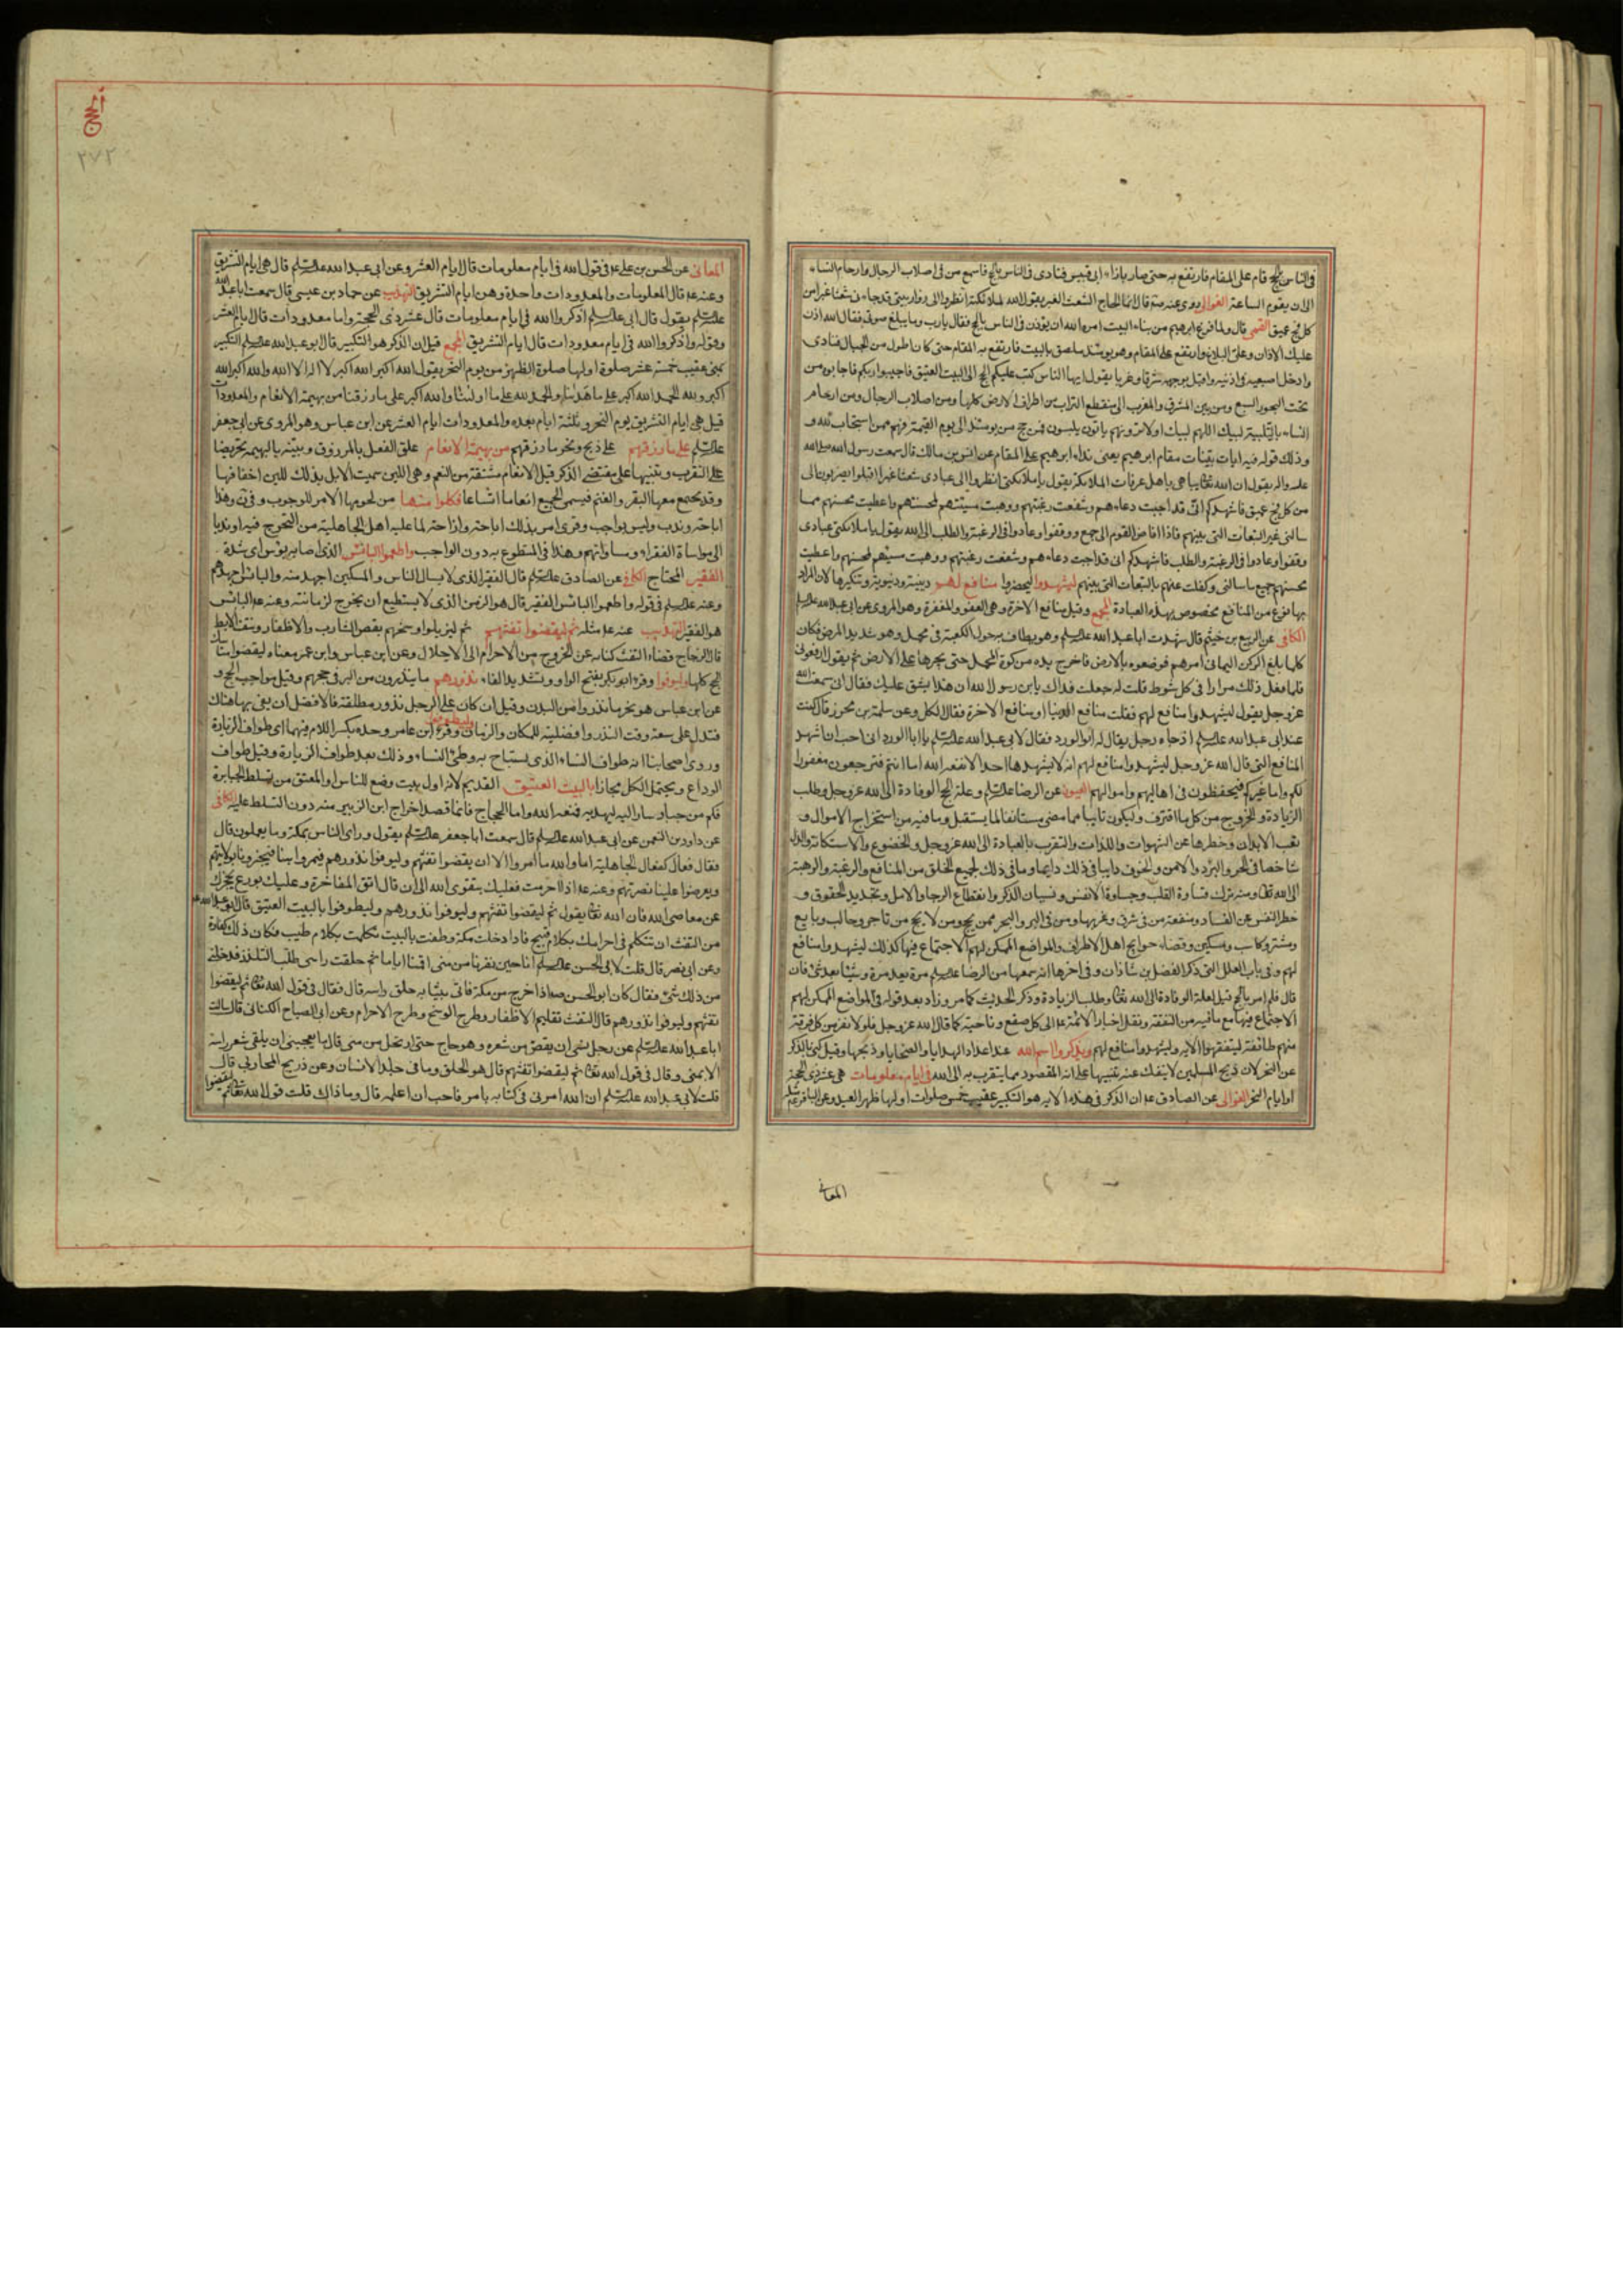 في الناس بالحج قام على المقام فارتفع به حتى صار بازاء ابي قبيس فنادى في الناس بالحج فاسمع من في اصلاب الرجال وارحام النساء
الى ان يقوم الساعة الغوالي روى عنه ص قال انما الحاج الشعث الغبر يقول الله لملائكته انظروا الى زوار بيتي قد جاءوني شعثا غبرا من
كل فج عميق القمي قال ولما فرغ ابرهيم من بناء البيت امره الله ان يؤذن في الناس بالحج فقال يارب وما يبلغ صوتي فقال الله اذن
عليك الاذان وعلي البلاغ وارتفع على المقام وهو يومئذ ملصق بالبيت فارتفع به المقام حتى كان اطول من الجبال فنادى
وادخل اصبعيه في اذنيه واقبل بوجهه شرقا وغربا يقول ايها الناس كتب عليكم الحج الى البيت العتيق فاجيبوا ربكم فاجابوه من
تحت البحور السبع ومن بين المشرق والمغرب الى منقطع التراب من اطراف الارض كلها ومن اصلاب الرجال ومن ارحام
النساء بالتلبية لبيك اللهم لبيك اولا ترونهم ياتون يلبون فمن حج من يومئذ الى يوم القيمة فهم ممن استجاب لله و
وذلك قوله فيه ايات بينات مقام ابرهيم يعني نداء ابرهيم على المقام عن انس بن مالك قال سمعت رسول الله صلى الله
عليه واله يقول ان الله تعالى يباهي باهل عرفات الملائكة يقول يا ملائكتي انظروا الى عبادي شعثا غبرا اقبلوا يضربون الى
من كل فج عميق فاشهدكم اني قد اجبت دعاءهم وشفعت رغبتهم ووهبت مسيئهم لمحسنهم واعطيت محسنهم مما
سالني غير التبعات التي بينهم فاذا افاض القوم الى جمع ووقفوا وعادوا في الرغبة والطلب الى الله يقول يا ملائكتي عبادي
وقفوا وعادوا في الرغبة والطلب فاشهدكم اني قد اجبت دعاءهم وشفعت رغبتهم ووهبت مسيئهم لمحسنهم واعطيت
محسنهم جميع ما سالني وكفلت عنهم بالتبعات التي بينهم ليشهدوا ليحضروا منافع لهم دينية ودنيوية وتنكيرها لان المراد
بها نوع من المنافع مخصوص بهذه العبادة المجمع وقيل منافع الاخرة وهي العفو والمغفرة وهو المروي عن ابي عبد الله عليه السلم
الكافي عن الربيع بن خيثم قال شهدت ابا عبد الله عليه السلم وهو يطاف به حول الكعبة في محمل وهو شديد المرض فكان
كلما بلغ الركن اليماني امرهم فوضعوه بالارض فاخرج يده من كوة المحمل حتى يجرها على الارض ثم يقول ارفعوني
فلما فعل ذلك مرارا في كل شوط قلت له جعلت فداك يا بن رسول الله ان هذا يشق عليك فقال اني سمعت الله
عز وجل يقول ليشهدوا منافع لهم فقلت منافع الدنيا او منافع الاخرة فقال الكل وعن سلمة بن محرز قال كنت
عند ابي عبد الله عليه السلم اذ جاءه رجل يقال له ابو الورد فقال لابي عبد الله عليه السلم يا ابا الورد اني احب ان اشهد
المنافع التي قال الله عز وجل ليشهدوا منافع لهم انه لا يشهدها احد الا نفعه الله اما انتم فترجعون مغفورا
لكم واما غيركم فيحفظون في اهاليهم واموالهم العيون عن الرضا عليه السلم وعلة الحج الوفادة الى الله عز وجل وطلب
الزيادة والخروج من كل ما اقترف وليكون تايبا مما مضى مستانفا لما يستقبل وما فيه من استخراج الاموال و
تعب الابدان وحظرها عن الشهوات واللذات والتقرب بالعبادة الى الله عز وجل والخضوع والاستكانة والذل
شاخصا في الحر والبرد والامن والخوف دايبا في ذلك دايما وما في ذلك لجميع الخلق من المنافع والرغبة والرهبة
الى الله تعالى ومنه ترك قساوة القلب وجساوة الانفس ونسيان الذكر وانقطاع الرجا والامل وتجديد الحقوق و
حظر النفس عن الفساد ومنفعة من في شرق وغربها ومن في البر والبحر ممن يحج ومن لا يحج من تاجر وجالب وبايع
ومشتر وكاسب ومسكين وقضاء حوايج اهل الاطراف والمواضع الممكن لهم الاجتماع فيها كذلك ليشهدوا منافع
لهم وفي باب العلل التي ذكر الفضل بن شاذان وفي اخرها انه سمعها من الرضا عليه السلم مرة بعد مرة وشيئا بعد شئ فان
قال فلم امر بالحج قيل لعلة الوفادة الى الله تعالى وطلب الزيادة وذكر الحديث كما مر وزاد بعد قوله في المواضع الممكن لهم
الاجتماع فيها مع ما فيه من التفقه ونقل اخبار الائمة ع الى كل صقع وناحية كما قال الله عز وجل فلولا نفر من كل فرقة
منهم طائفة ليتفقهوا الاية وليشهدوا منافع لهم ويذكروا اسم الله عند اعداد الهدايا والضحايا وذبحها وقيل كنى بالذكر
عن النحر لان ذبح المسلمين لا ينفك عنه تنبيها على انه المقصود مما يتقرب به الى الله في ايام معلومات هي عشر ذي الحجة
او ايام النحر الغوالي عن الصادق ع ان الذكر في هذه الاية هو التكبير عقيب خمس صلوات اولها ظهر العيد وعن الباقر ع مثله
المعاني
٢٧٢
المعاني عن الحسن بن علي ع في قول الله في ايام معلومات قال ايام العشر وعن ابي عبد الله عليه السلم قال هي ايام التشريق
وعنه ع قال المعلومات والمعدودات واحدة وهن ايام التشريق التهذيب عن حماد بن عيسى قال سمعت ابا عبد الله
عليه السلم يقول قال ابي عليه السلم اذكروا الله في ايام معلومات قال عشر ذي الحجة واما معدودات قال ايام التشر
وقوله واذكروا الله في ايام معدودات قال ايام التشريق المجمع قيل ان الذكر هو التكبير قال ابو عبد الله عليه السلم التكبير
بمنى عقيب خمسة عشر صلوة اولها صلوة الظهر من يوم النحر يقول الله اكبر الله اكبر لا اله الا الله والله اكبر الله
اكبر ولله الحمد الله اكبر على ما هدانا والحمد لله على ما اولينا والله اكبر على ما رزقنا من بهيمة الانعام والمعدودات
قيل هي ايام التشريق يوم النحر وثلثة ايام بعده والمعدودات ايام العشر عن ابن عباس وهو المروي عن ابي جعفر
عليه السلم على ما رزقهم على ذبح ونحر ما رزقهم من بهيمة الانعام علق الفعل بالمرزوق وبينه بالبهيمة تحريضا
على التقرب وتنبيها على مقتضى الذكر قيل الانعام مشتقة من النعم وهي اللين سميت الابل بذلك للين اخفافها
وقد يجتمع معها البقر والغنم فيسمى الجميع انعاما اتساعا فكلوا منها من لحومها الامر للوجوب وهذا
اباحة وندب وليس بواجب امر بذلك اباحة وازاحة لما عليه اهل الجاهلية من التحرج فيه او ندبا
الى مواساة الفقراء ومساواتهم وهذا في المتطوع به دون الواجب واطعموا البائس الذي اصابه بؤس اي شدة
الفقير المحتاج الكافي عن الصادق عليه السلم قال الفقير الذي لا يسال الناس والمسكين اجهد منه والبائس اجهدهم
وعنه عليه السلم في قوله واطعموا البائس الفقير قال هو الزمن الذي لا يستطيع ان يخرج لزمانته وعنه ع البائس
هو الفقير التهذيب عنه ع مثله ثم ليقضوا تفثهم ثم ليزيلوا وسخهم بقص الشارب والاظفار ونتف الابط
قال الزجاج قضاء التفث كناية عن الخروج من الاحرام الى الاحلال وعن ابن عباس وابن عمر معناه ليقضوا مناسك
الحج كلها وليوفوا وقرء ابو بكر بفتح الواو وتشديد الفاء نذورهم ما ينذرون من البر في حجهم وقيل مواجب الحج و
عن ابن عباس هو نحر ما نذروا من البدن وقيل ان كان على الرجل نذور مطلقة فالافضل ان يفي بها هناك
فتدل على سعة وقت النذر وافضلية المكان والزمان وليطوفوا وقرء ابن عامر وحده بكسر اللام فيهما اي طواف الزيارة
وروى اصحابنا انه طواف النساء الذي يستباح به وطئ النساء وذلك بعد طواف الزيارة وقيل طواف
الوداع ويحتمل الكل مجازا بالبيت العتيق القديم لانه اول بيت وضع للناس او المعتق من تسلط الجبابرة
فكم من جبار سار اليه ليهدمه فمنعه الله واما الحجاج فانما قصد اخراج ابن الزبير منه دون التسلط عليه الكافي
عن داود بن النعمن عن ابي عبد الله عليه السلم قال سمعت ابا جعفر عليه السلم يقول وراى الناس بمكة وما يعملون قال
فقال فعال كفعال الجاهلية اما والله ما امروا الا ان يقضوا تفثهم وليوفوا نذورهم فيمروا بنا فيخبرونا بولايتهم
ويعرضوا علينا نصرتهم وعنه ع اذا احرمت فعليك بتقوى الله الى ان قال اتق المفاخرة وعليك بورع يحجزك
عن معاصي الله فان الله تعالى يقول ثم ليقضوا تفثهم وليوفوا نذورهم وليطوفوا بالبيت العتيق قال ابو عبد الله ع
من التفث ان تتكلم في احرامك بكلام قبيح فاذا دخلت مكة وطفت بالبيت تكلمت بكلام طيب فكان ذلك كفارة
وعن ابي نصر قال قلت لابي الحسن عليه السلم انا حين نفرنا من منى اقمنا اياما ثم حلقت راسي طلب التلذذ فدخلني
من ذلك شئ فقال كان ابو الحسن ص اذا خرج من مكة فاتي بثيابه حلق راسه قال فقال في قول الله تعالى ثم ليقضوا
تفثهم وليوفوا نذورهم قال التفث تقليم الاظفار وطرح الوسخ وطرح الاحرام وعن ابي الصباح الكناني قال سالت
ابا عبد الله عليه السلم عن رجل نسي ان يقصر من شعره وهو حاج حتى ارتحل من منى قال ما يعجبني ان يلقي شعر راسه
الا بمنى وقال في قول الله تعالى ثم ليقضوا تفثهم قال هو الحلق وما في جلد الانسان وعن ذريح المحاربي قال
قلت لابي عبد الله عليه السلم ان الله امرني في كتابه بامر فاحب ان اعلمه قال وما ذاك قلت قول الله تعالى ثم ليقضوا